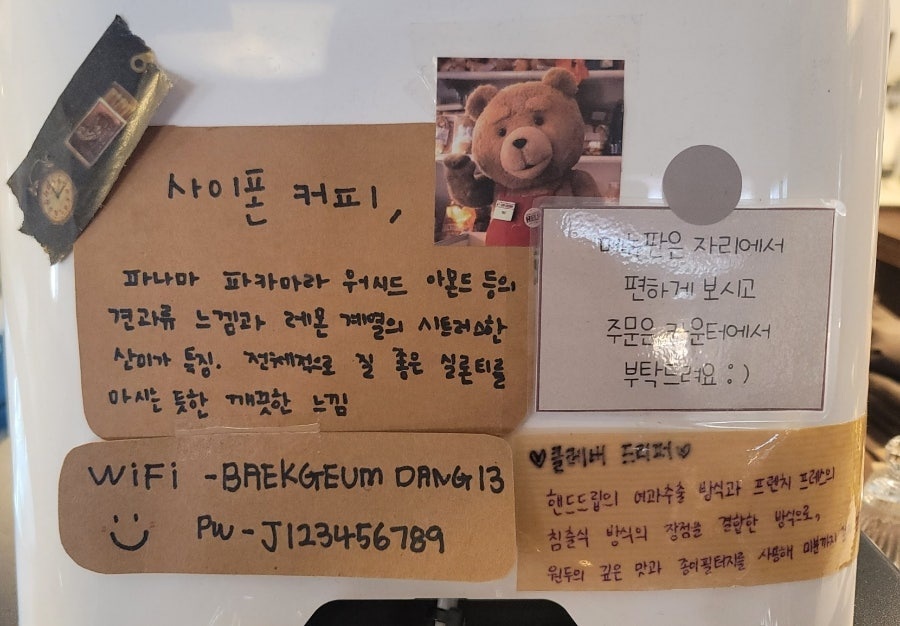 사이폰 커피,
파나마 파카마라 워시드 아몬드 등의
견과류 느낌과 레몬 계열의 시트러스한
산미가 특징. 전체적으로 질 좋은 실론티를
마시는 듯한 깨끗한 느낌
메뉴판은 자리에서
편하게 보시고
주문은 카운터에서
부탁드려요 : )
WiFi - BAEKGEUM DANG13
PW - J123456789
♥클레버 드리퍼♥
핸드드립의 여과추출 방식과 프렌치 프레스의
침출식 방식의 장점을 결합한 방식으로,
원두의 깊은 맛과 종이필터지를 사용해 미분까지